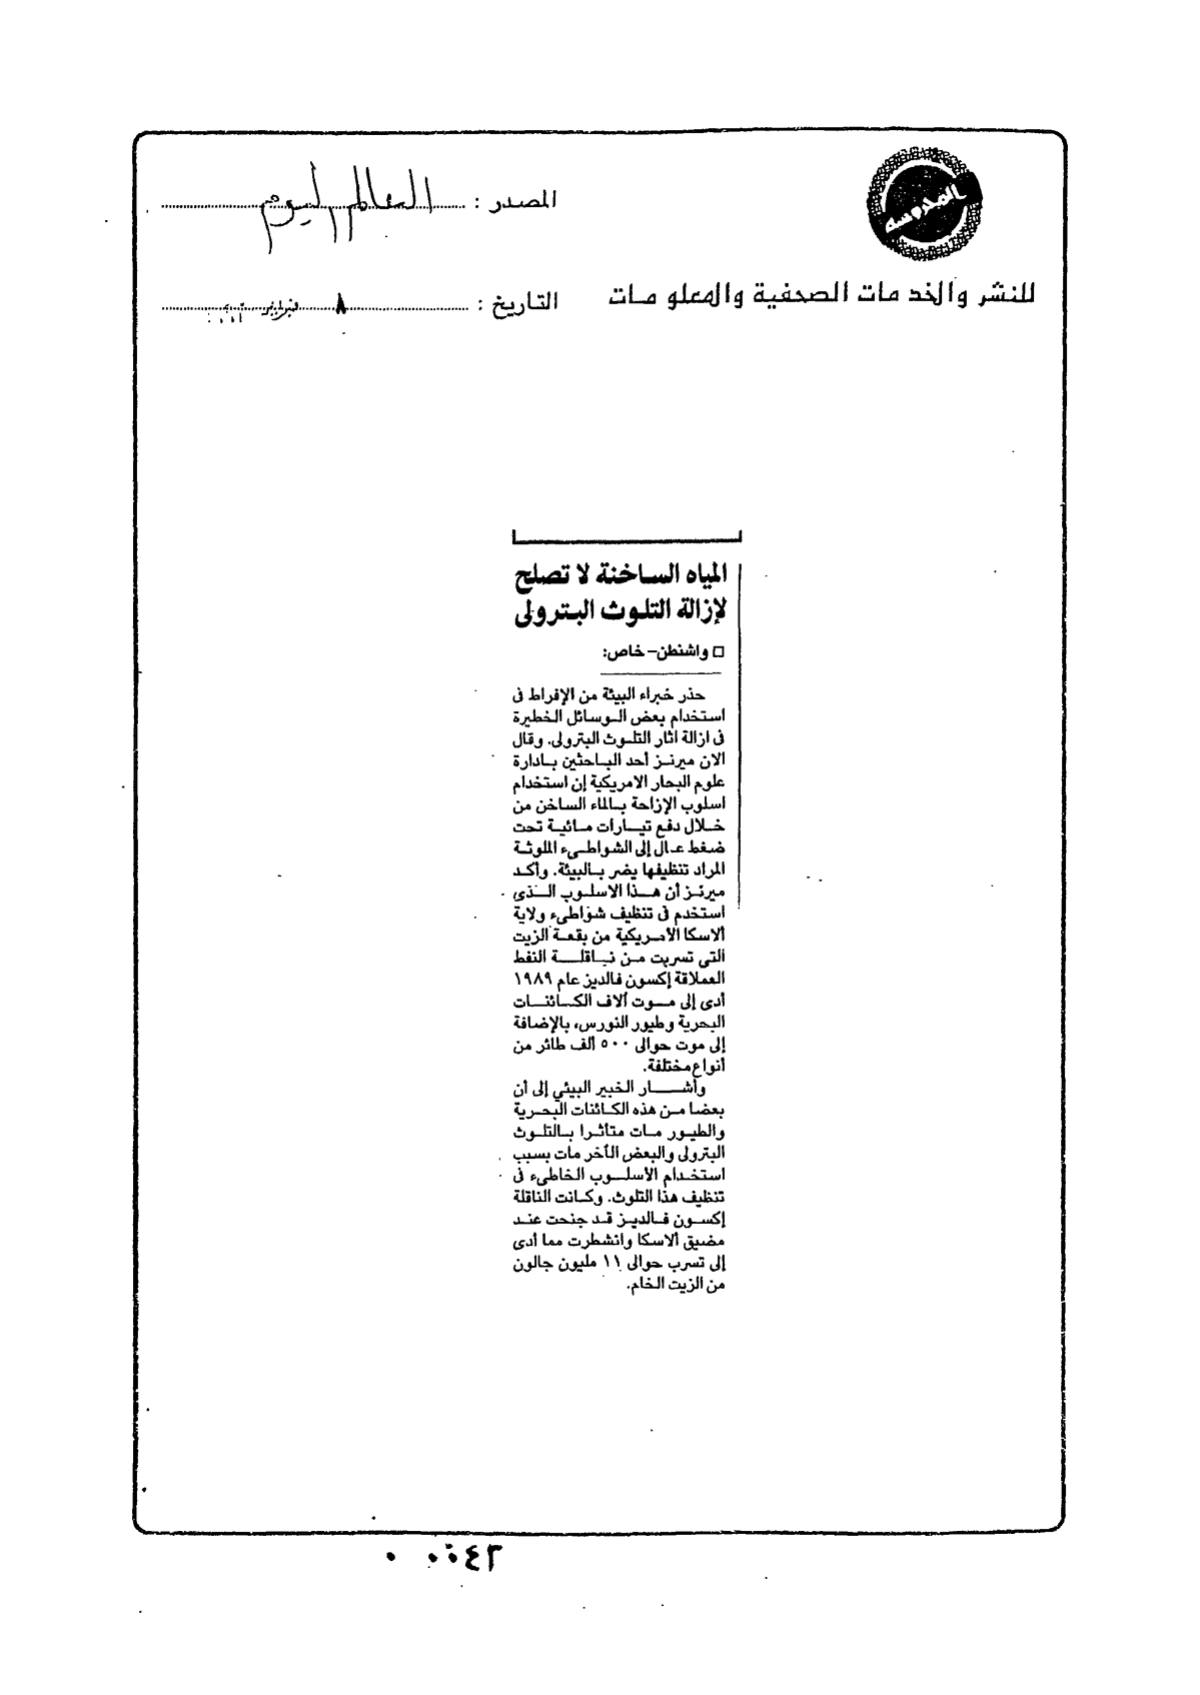 المصدر : العالم اليوم
للنشر والخدمات الصحفية والمعلومات
التاريخ : ٨ فبراير
المياه الساخنة لا تصلح
لإزالة التلوث البترولى
□ واشنطن- خاص:
حذر خبراء البيئة من الإفراط فى
استخدام بعض الوسائل الخطيرة
فى ازالة اثار التلوث البترولى. وقال
الان ميرنز أحد الباحثين بادارة
علوم البحار الامريكية إن استخدام
اسلوب الإزاحة بالماء الساخن من
خلال دفع تيارات مائية تحت
ضغط عال إلى الشواطىء الملوثة
المراد تنظيفها يضر بالبيئة. وأكد
ميرنز أن هذا الاسلوب الذى
استخدم فى تنظيف شواطىء ولاية
ألاسكا الأمريكية من بقعة الزيت
التى تسربت من ناقلة النفط
العملاقة إكسون فالديز عام ١٩٨٩
أدى إلى موت ألاف الكائنات
البحرية وطيور النورس، بالإضافة
إلى موت حوالى ٥٠٠ ألف طائر من
أنواع مختلفة.
وأشار الخبير البيئي إلى أن
بعضا من هذه الكائنات البحرية
والطيور مات متأثرا بالتلوث
البترولى والبعض الأخر مات بسبب
استخدام الأسلوب الخاطىء فى
تنظيف هذا التلوث. وكانت الناقلة
إكسون فالديز قد جنحت عند
مضيق ألاسكا وانشطرت مما أدى
إلى تسرب حوالى ١١ مليون جالون
من الزيت الخام.